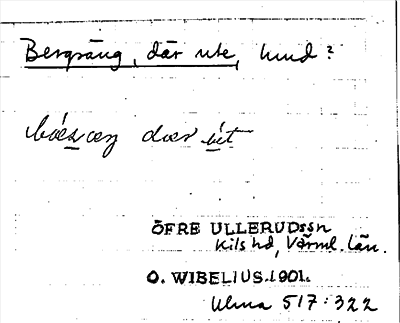 Bergsäng, där ute, hund?
dær
ÖFRE ULLERUDssn
Kils hd, Värml. län.
O. WIBELIUS.1901.
Ulma 517:322